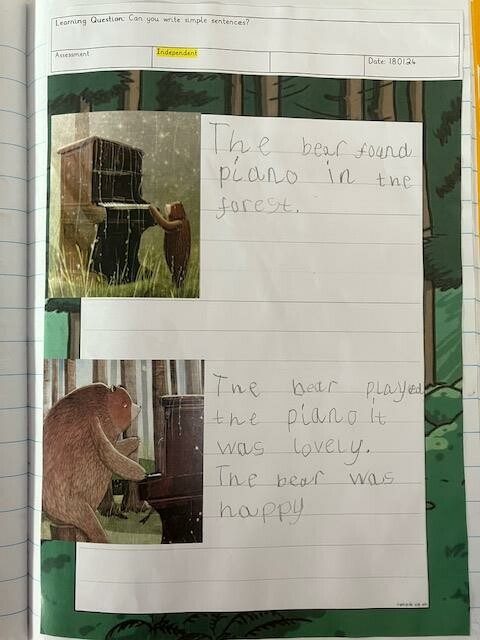 Learning Question: Can you write simple sentences?
Assessment
Independent
Date: 18.01.24
The bear found
piano in the
forest.
The bear played
the piano it
was lovely.
The bear was
happy